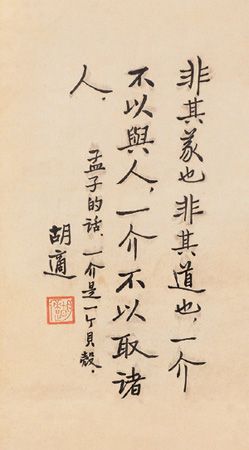 非其義也非其道也，一介
不以與人，一介不以取諸
人，
孟子的話，一介是一个貝殼．
胡適